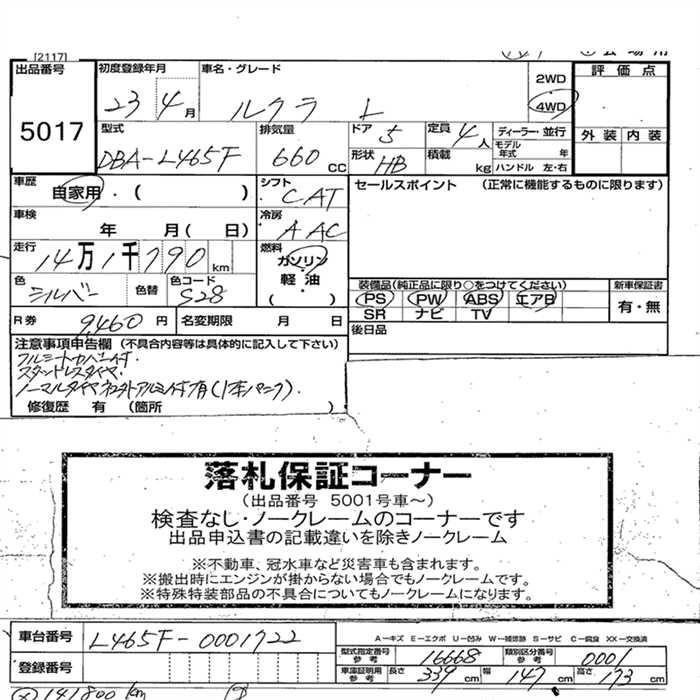 [2117]
出品番号
5017
初度登録年月
23 4月
車名・グレード
ルクラ L
2WD
4WD
評価点
外装 内装
型式
DBA-L465F
排気量
660 CC
ドア 5
形状 HB
定員 4人
積載 kg
ディーラー・並行
モデル年式 年
ハンドル 左・右
車歴 自家用・( )
シフト CAT
セールスポイント (正常に機能するものに限ります)
車検 年 月( 日)
冷房 AAC
走行 14万1千790km
燃料 ガソリン
軽油
( )
色 シルバー
色替
色コード S28
装備品(純正品に限り○をつけてください)
PS PW ABS エアB
SR ナビ TV
新車保証書
有・無
R券 9,460円
名変期限 月 日
後日品
注意事項申告欄 (不具合内容等は具体的に記入して下さい)
フルシートカバー付.
スタットレスタイヤ.
修復歴 有 (箇所 )
落札保証コーナー
(出品番号 5001号車~)
検査なし・ノークレームのコーナーです
出品申込書の記載違いを除きノークレーム
※不動車、冠水車など災害車も含まれます。
※搬出時にエンジンが掛からない場合でもノークレームです。
※特殊特装部品の不具合についてもノークレームになります。
車台番号 L465F-0001722
A-キズ E-エクボ U-凹み W-補修跡 S-サビ C-腐食 XX-交換済
登録番号
型式指定番号 参考 16668
類別区分番号 参考 0001
車庫証明用 参考 長さ 339 cm 幅 147 cm 高さ 173 cm
141800 km